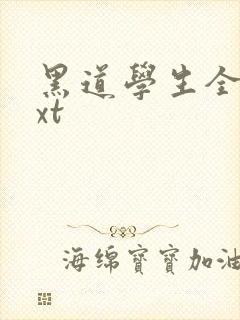 黑道學生全
xt
海绵寶寶加油